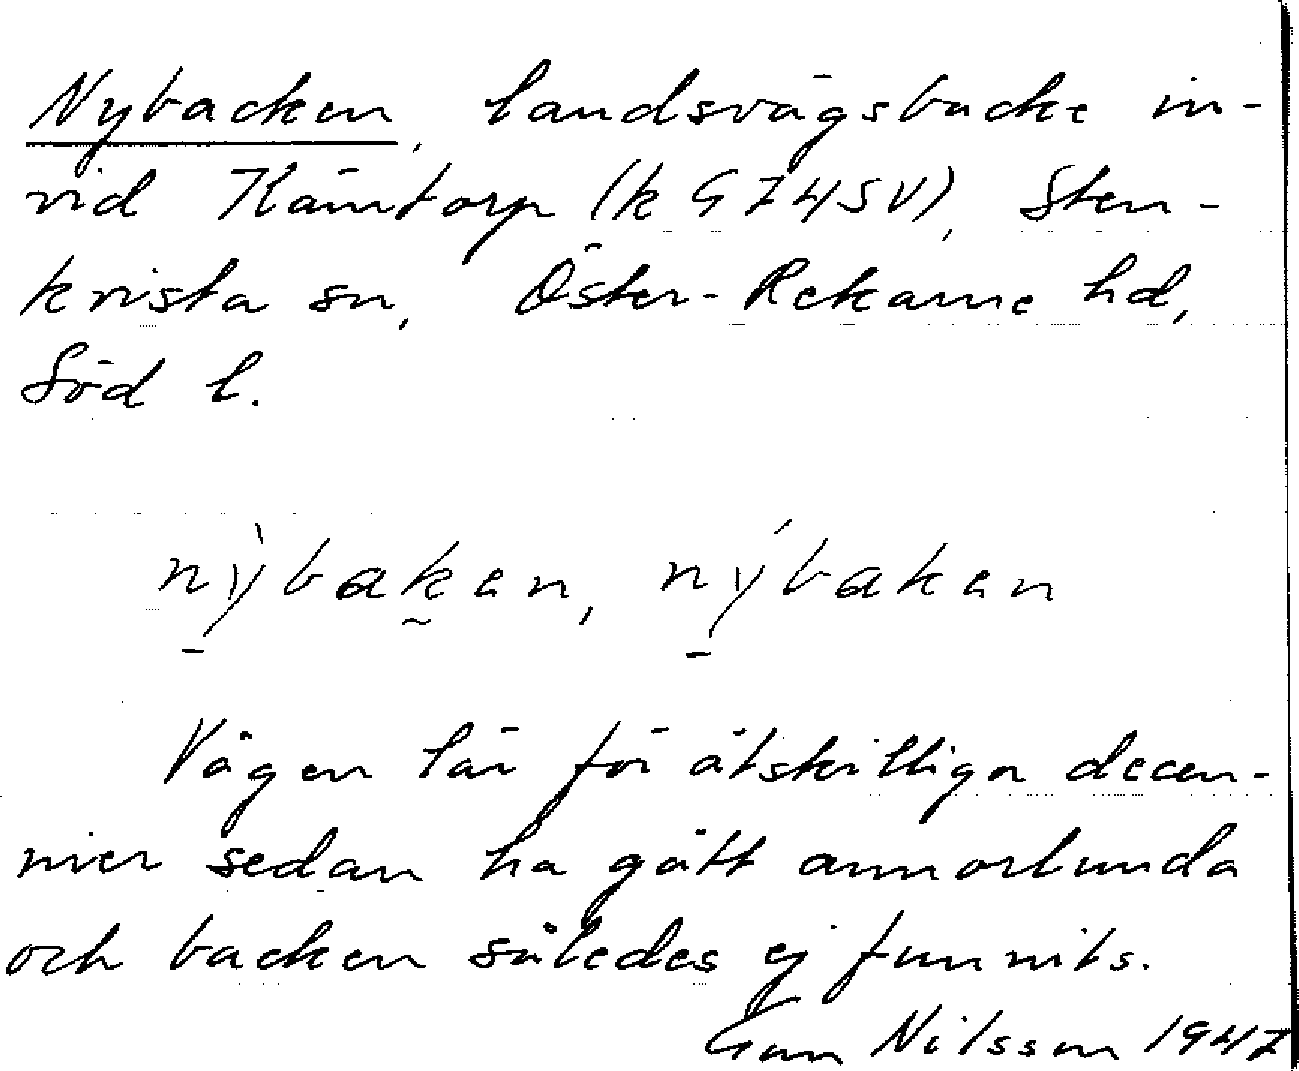 Nybacken, landsvägsbacke in-
vid Kämtorp (k G745V), Sten-
kvista sn, Öster-Rekarne hd,
Söd l.
nỳbaken, nýbaken
Vägen lär för åtskilliga decen-
nier sedan ha gått annorlunda
och backen således ej funnits.
Gun Nilsson 1947